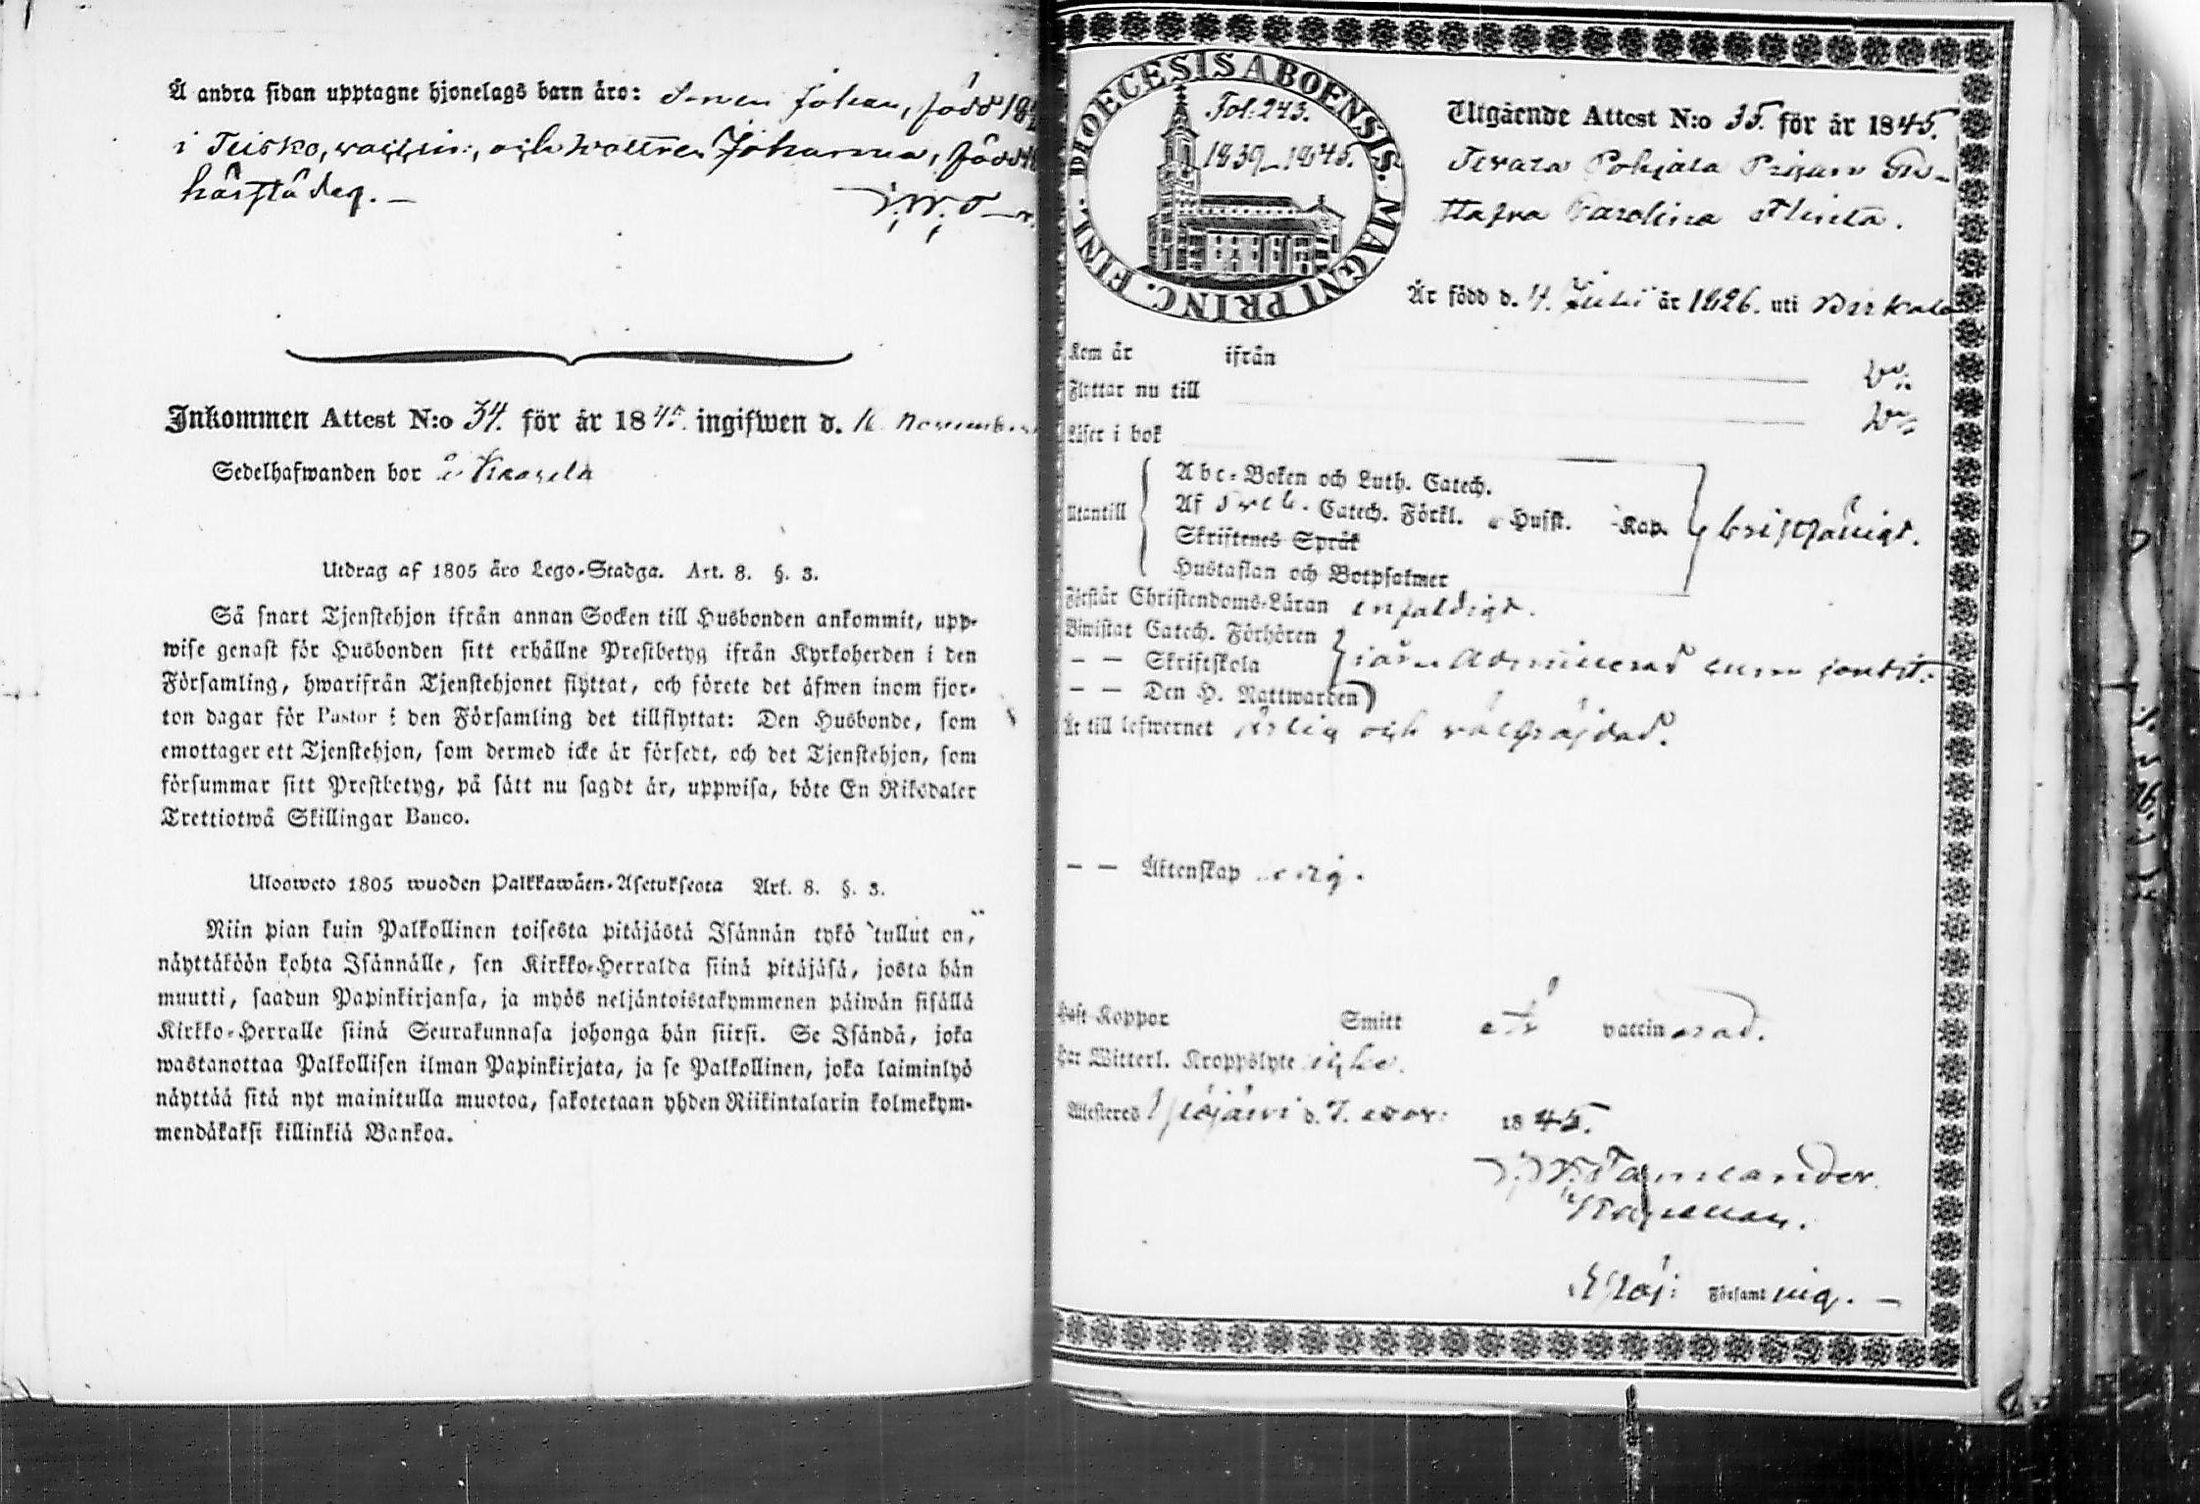 Å andra sidan upptagne hjonelags barn äro: Johan, född 18
i Teisko, vaccin:, och Johanna, född
härstädes. —
Inkommen Attest N:o 34. för år 1845. ingifwen d. 16 November
Sedelhafwanden bor å
Utdrag af 1805 års Lego-Stadga. Art. 8. §. 3.
Så snart Tjenstehjon ifrån annan Socken till Husbonden ankommit, upp-
wise genast för Husbonden sitt erhållne Prestbetyg ifrån Kyrkoherden i den
Församling, hwarifrån Tjenstehjonet flyttat, och förete det äfwen inom fjor-
ton dagar för Pastor i den Församling det tillflyttat: Den Husbonde, som
emottager ett Tjenstehjon, som dermed icke är försedt, och det Tjenstehjon, som
försummar sitt Prestbetyg, på sätt nu sagdt är, uppwisa, böte En Riksdaler
Trettiotwå Skillingar Banco.
Uloosweto 1805 wuoden Palkkawäen-Asetuksesta Art. 8. §. 3.
Niin pian kuin Palkollinen toisesta pitäjästä Isännän tykö tullut on,
näyttäköön kohta Isännälle, sen Kirkko-Herralda siinä pitäjäsä, josta hän
muutti, saadun Papinkirjansa, ja myös neljäntoistakymmenen päiwän sisällä
Kirkko-Herralle siinä Seurakunnasa johonga hän siirsi. Se Isändä, joka
wastanottaa Palkollisen ilman Papinkirjata, ja se Palkollinen, joka laiminlyö
näyttää sitä nyt mainitulla muotoa, sakotetaan yhden Riikintalarin kolmekym-
mendäkaksi killinkiä Bankoa.
DIOECESIS ABOENSIS. MAGNI PRINC. FINL.
Fol. 243.
1839–1845.
Utgående Attest N:o 35. för år 1845.
Pohjala Pigan
Carolina
Är född d. 4. Julii år 1826. uti Birkala
Kom år ifrån
Flyttar nu till
Läser i bok
Utantill
Abc-Boken och Luth. Catech.
Af Sveb. Catech. Förkl. Husst. Kap.
Skriftenes Språk
Hustaflan och Botpsalmer
bristfäligt.
Förstår Christendoms-Läran enfaldigt.
Biwistat Catech. Förhören
— — Skriftskola
— — Den H. Nattwarden
Är till lefwernet ärlig och välfräjdad.
— — Äktenskap
Haft Koppor Smitt är vaccinerad.
Har Witterl. Kroppslyte icke.
Attesteras d. 7. Nov: 1845.
Församlning. —